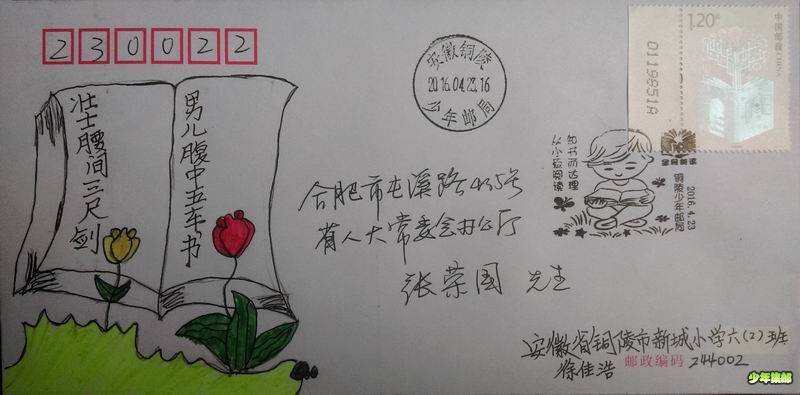 230022
壮士腰间三尺剑
男儿腹中五车书
安徽铜陵
2016.04.23.16
少年邮局
1.20元
中国邮政
CHINA
0119851A
知书而达理
从小爱阅读
全民阅读
铜陵少年邮局
2016.4.23
合肥市屯溪路435号
省人大常委会办公厅
张荣国 先生
安徽省铜陵市新城小学六(2)班
徐佳浩
邮政编码 244002
少年集邮